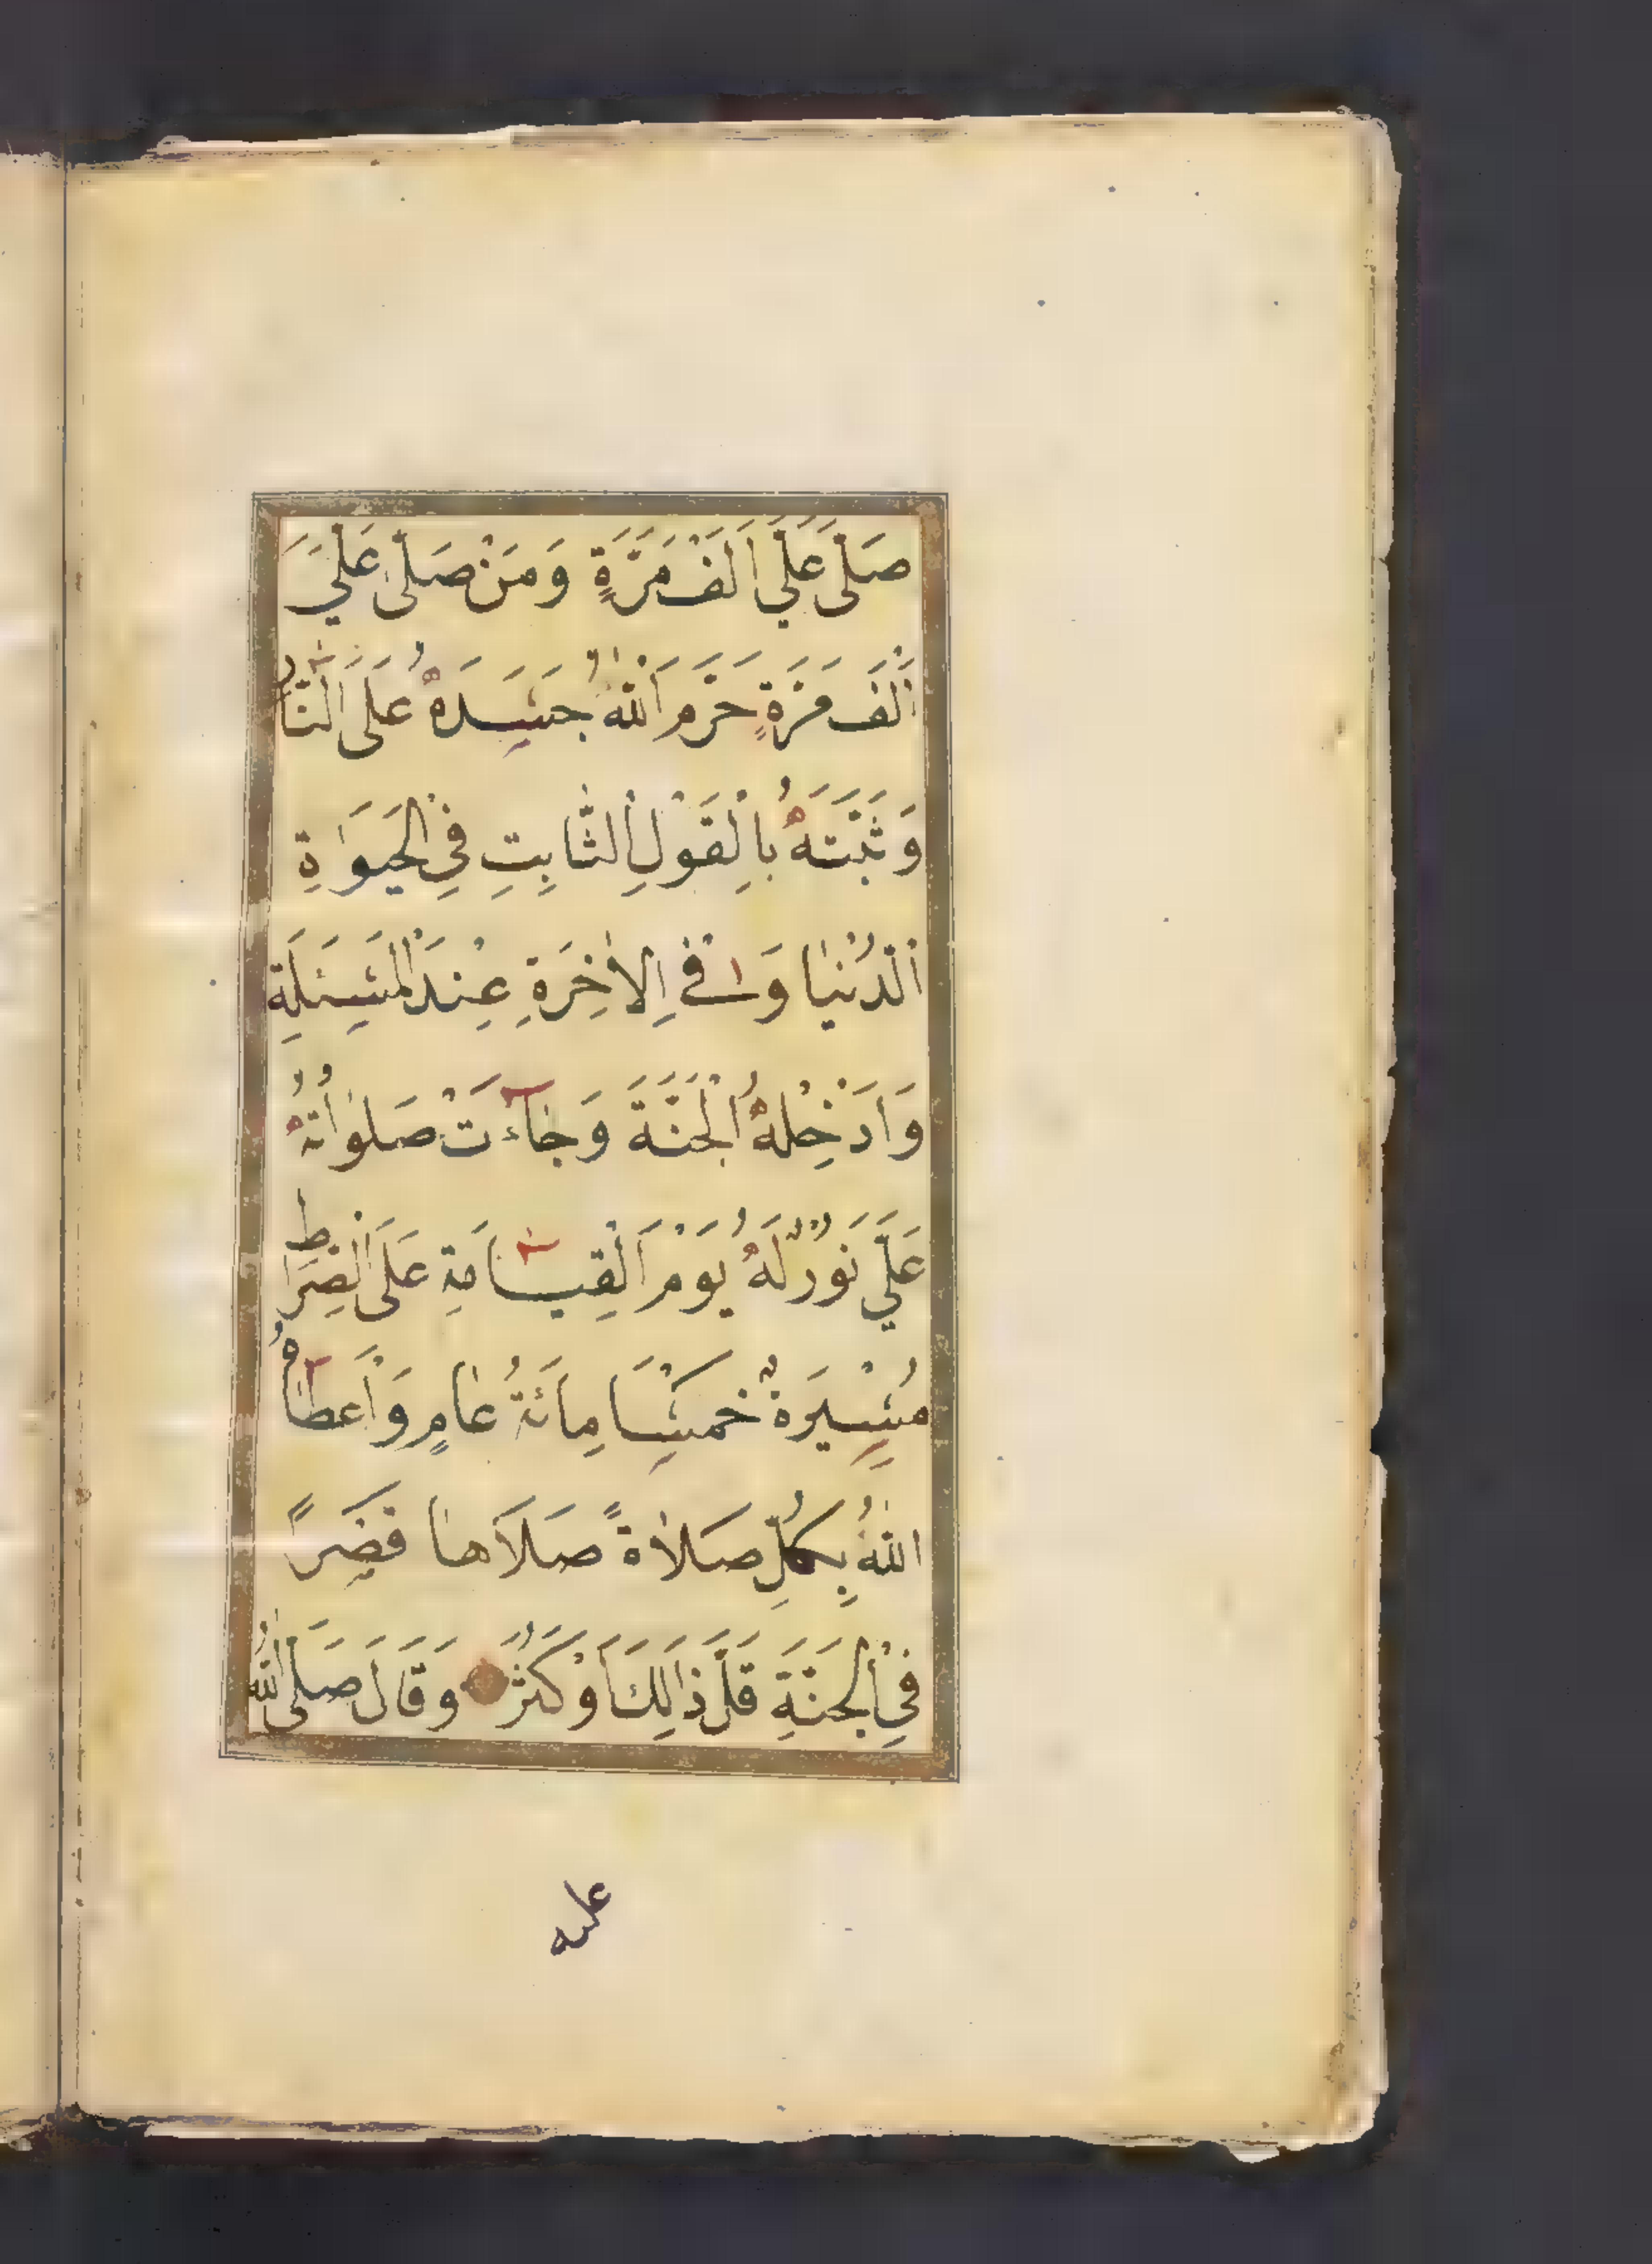 صَلَّى عَلَيَّ اَلْفَ مَرَّةٍ وَمَنْ صَلّٰى عَلَيَّ
اَلْفَ مَرَّةٍ حَرَّمَ اللّٰهُ جَسَدَهُ عَلَى النَّارِ
وَثَبَّتَهُ بِالْقَوْلِ الثَّابِتِ فِي الْحَيَوٰةِ
الدُّنْيَا وَفِي الْاٰخِرَةِ عِنْدَ الْمَسْئَلَةِ
وَاَدْخَلَهُ الْجَنَّةَ وَجَاءَتْ صَلَوَاتُهُ
عَلَيَّ نُوْرٌ لَهُ يَوْمَ الْقِيَامَةِ عَلَى الصِّرَاطِ
مَسِيْرَةُ خَمْسَامِائَةُ عَامٍ وَاَعْطَاهُ
اللّٰهُ بِكُلِّ صَلَاةً صَلَاهَا قَصْرًا
فِي الْجَنَّةِ قَلَّ ذَالِكَ اَوْ كَثُرَ وَقَالَ صَلَّى اللّٰهُ
عليه